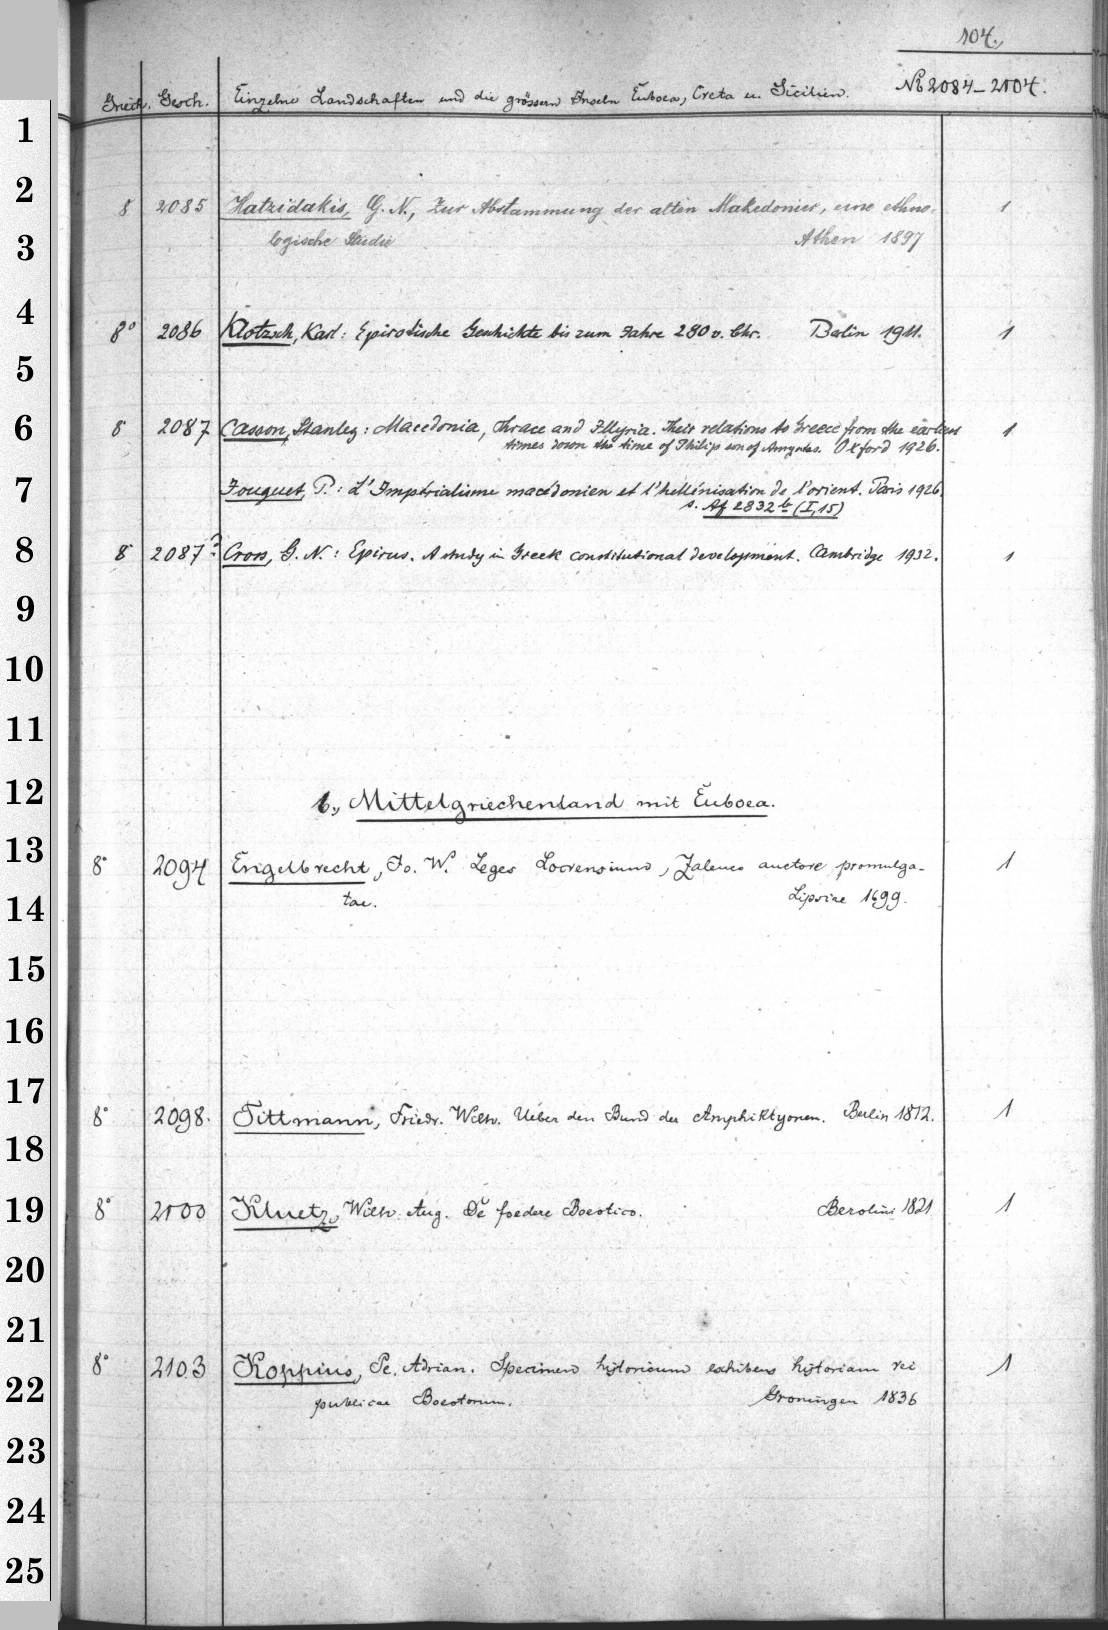 104.
Griech. Gesch. Einzelne Landschaften und die grössern Inseln Euboea, Creta u. Sicilien. № 2084-2104.
1
2
8 2085 Hatzidakis, G. N., Zur Abstammung der alten Makedonier, eine ethno- 1
3 logische Studie Athen 1897
4
8° 2086 Klotzsch, Karl: Epirotische Geschichte bis zum Jahre 280 v. Chr. Berlin 1911. 1
5
6 8 2087 Casson, Stanley: Macedonia, Thrace and Illyria. Their relations to Greece from the earliest 1
times down the time of Philip son of Amyntas. Oxford 1926.
7 Jouguet, P.: L'Impérialisme macédonien et l'hellénisation de l'orient. Paris 1926.
s. Af 2832 (I,15)
8 8 2087 Cross, G. N.: Epirus. A study in Greek constitutional development. Cambridge 1932. 1
9
10
11
12 b., Mittelgriechenland mit Euboea.
13 8° 2094 Engelbrecht, Jo. W. Leges Locrensium, Zaleuco auctore promulga- 1
14 tae. Lipsiae 1699.
15
16
17
8° 2098. Tittmann, Friedr. Wilh. Ueber den Bund der Amphiktyonen. Berlin 1812. 1
18
19 8° 2100 Kluetz, Wilh. Aug. De foedere Boeotico. Berolini 1821 1
20
21
8° 2103 Koppius, Pe. Adrian. Specimen historicum exhibens historiam rei 1
22 publicae Boeotorum. Groningen 1836
23
24
25